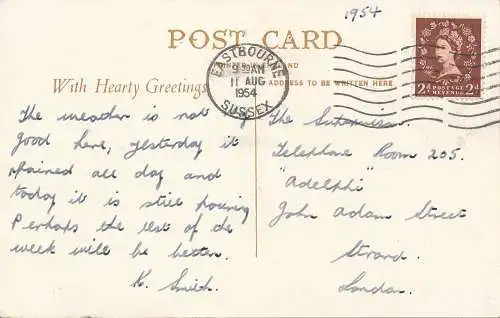 1954
POST CARD
With Hearty Greetings
ADDRESS TO BE WRITTEN HERE
EASTBOURNE
9 30 AM
11 AUG
1954
SUSSEX
POSTAGE REVENUE
2d 2d
The weather is not
good here, yesterday it
rained all day and
today it is still pouring
Perhaps the rest of the
week will be better.
K. Smith.
The Supervisor
Telephone Room 205.
"Adelphi"
John Adam Street
Strand.
London.